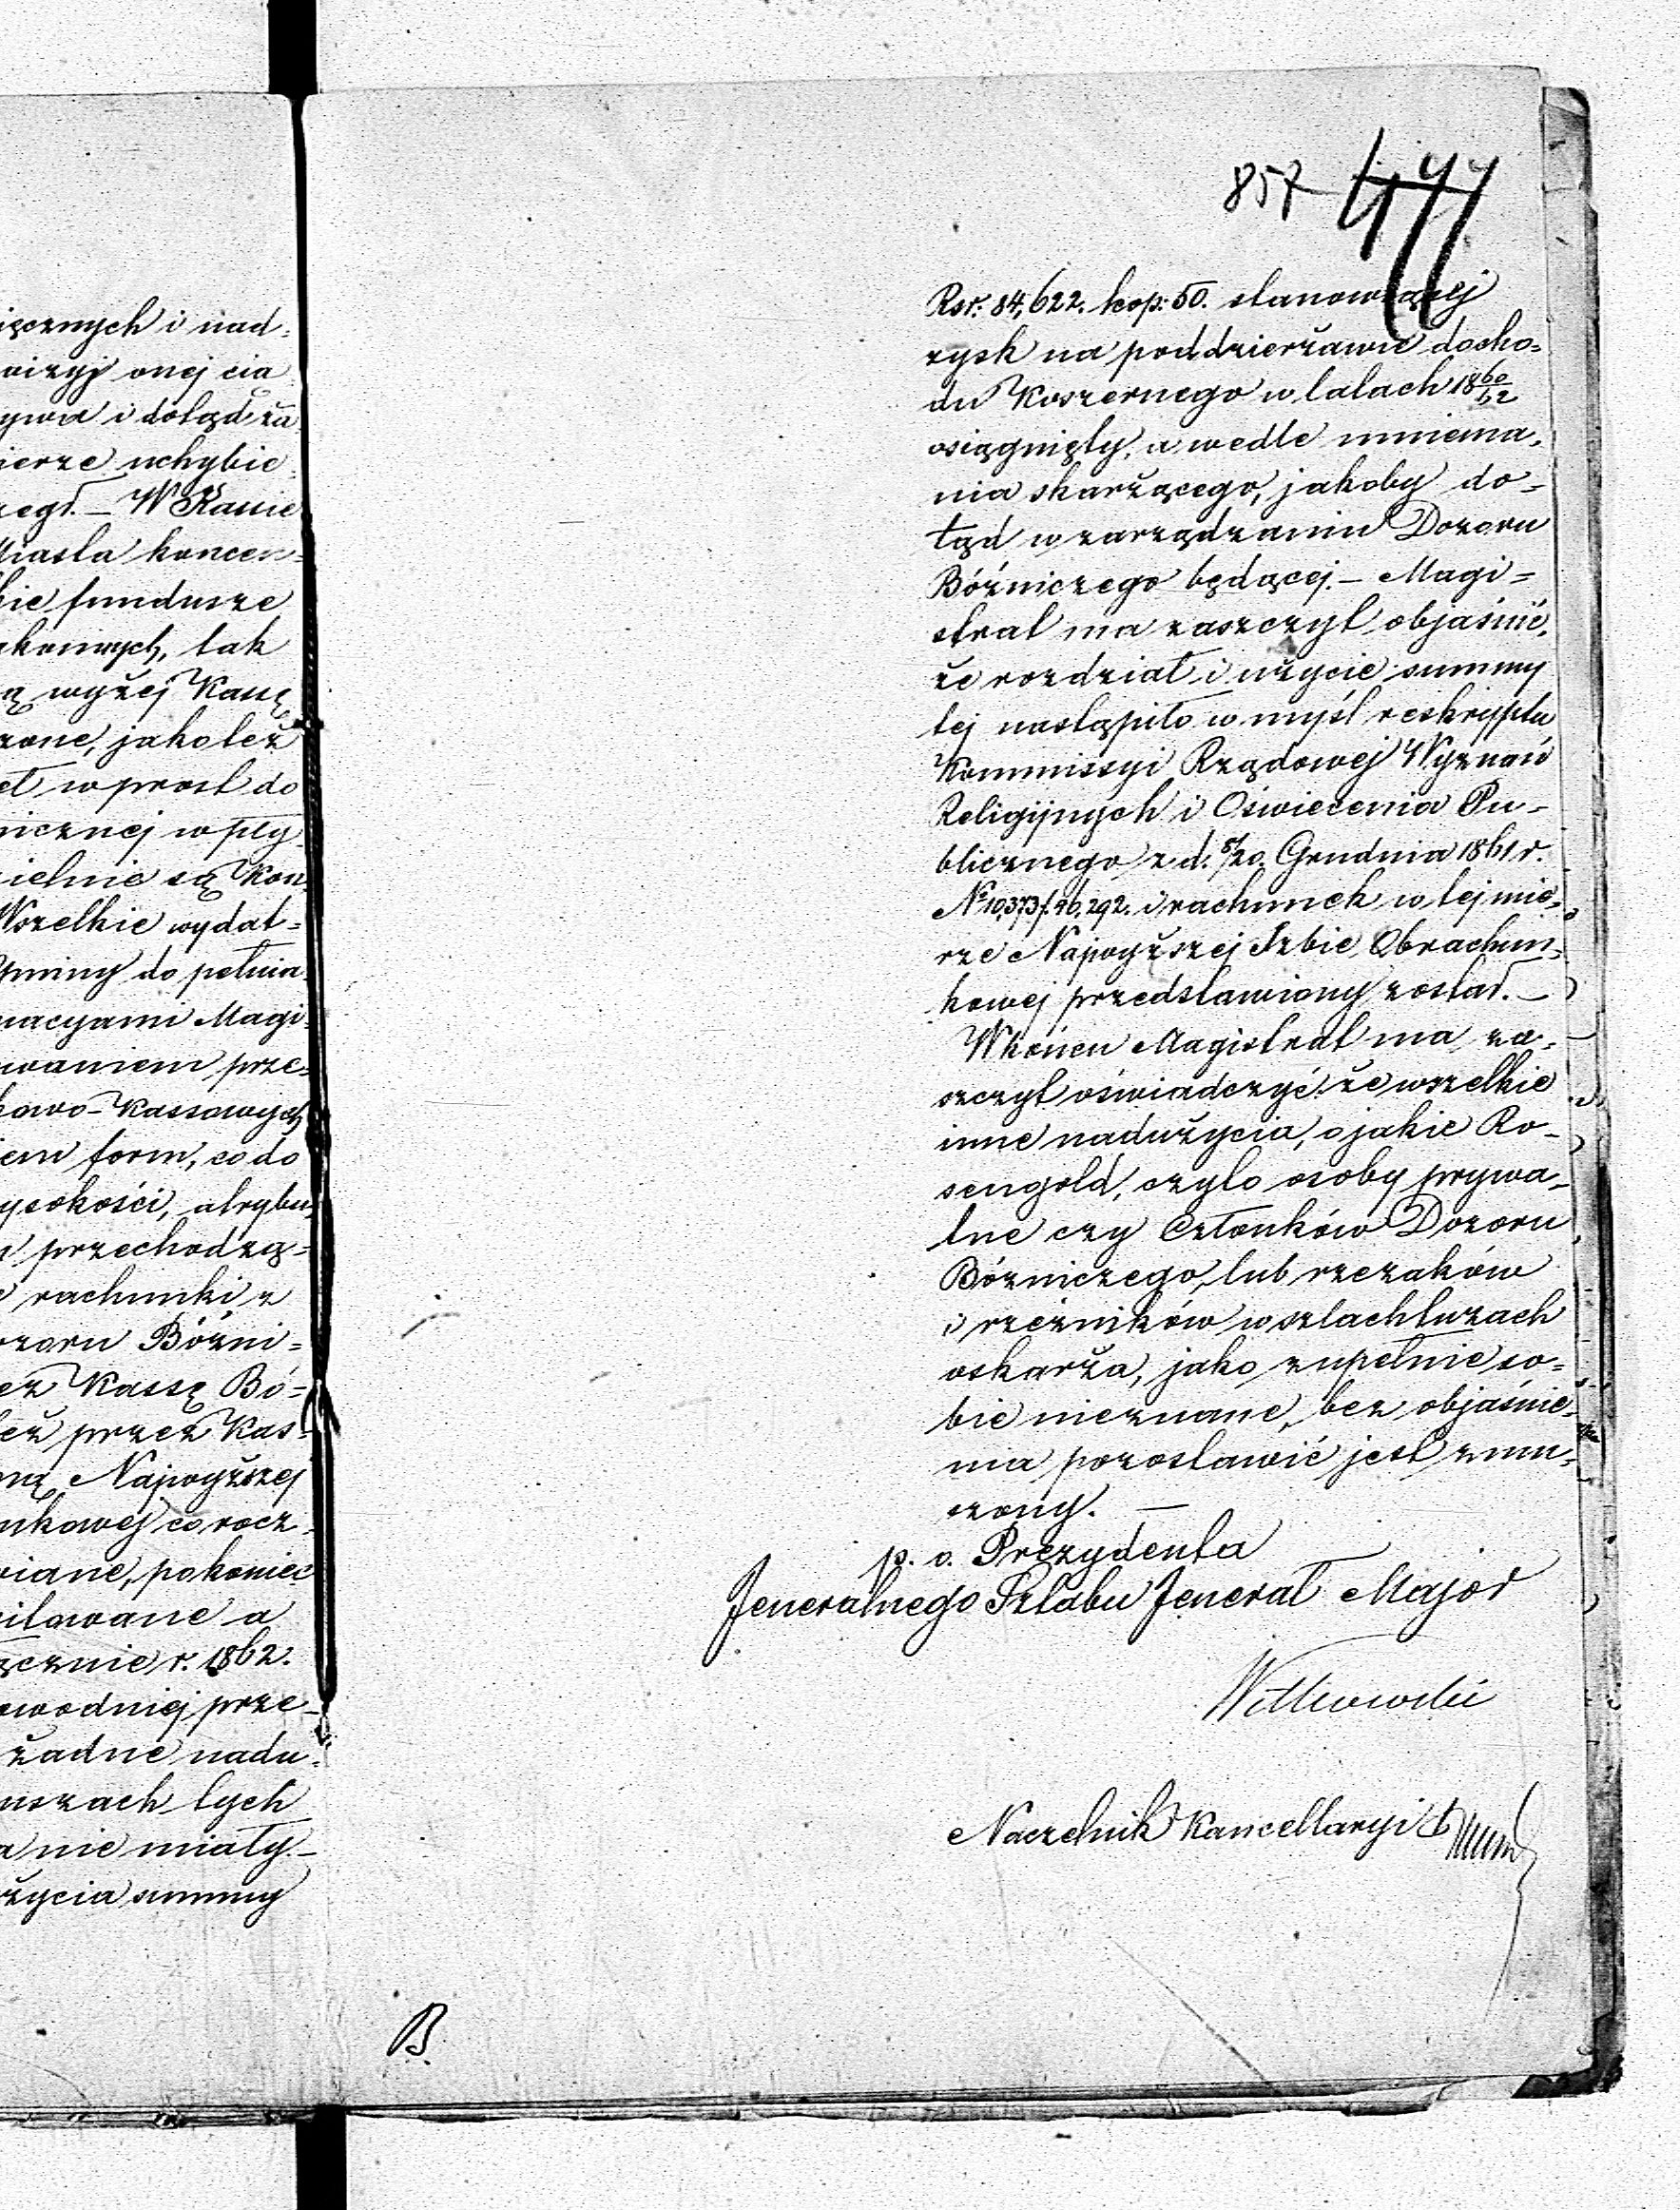 ięcznych i nad=
wizyi onej cią
ywa i dotąd za
mierze uchybie
egł. — W Kassie
Miasta koncen=
kie fundusze
akownych, tak
ą wyżej Kassę
zone, jakoteż
et wprost do
nicznej wpły
ielnie są Kon
Wszelkie wydat=
Gminy do pełnia
nacyami Magi=
waniem prze=
kowo-Kassowych
iem form, co do
ysokości, atrybu
przechodzą=
rachunki z
ozoru Bóżni=
ez Kassę Bó=
też przez Kas=
ną Najwyższej
unkowej corocz=
wiane, pokoniec
ącznie r. 1862.
owodniej prze-
żadne nadu=
uszach tych
a nie miały. —
życia summy
857 477
Rsr. 84,622. kop: 50. stanowiącej
zysk na poddzierżawie docho=
du Koszernego w latach 18 60/62
osiągnięty, a wedle mniema=
nia skarżącego, jakoby do=
tąd w zarządzaniu Dozoru
Bóźniczego będącej. — Magi=
strat ma zaszczyt objaśnić,
że rozdział i użycie summy
tej nastąpiło w myśl reskryptu
Kommissyi Rządowej Wyznań
Religijnych i Oświecenia Pu-
blicznego z d. 8/20. Grudnia 1861 r.
No 10,373/.96,292. i rachunek w tej mie=
rze Najwyższej Izbie Obrachun=
kowej przedstawiony został. —
W końcu Magistrat ma za=
szczyt oświadczyć że wszelkie
inne nadużycia, o jakie Ro-
sengold, czyto osoby prywa-
tne czy Członków Dozoru
Bóźniczego, lub rzezaków
i rzeźników w szlachtuzach
oskarża, jako zupełnie so=
bie nieznane, bez objaśnie=
nia pozostawić jest zmu=
szony. —
p. o. Prezydenta
Jeneralnego Sztabu Jenerał Major
Witkowski
Naczelnik Kancellaryi
B.